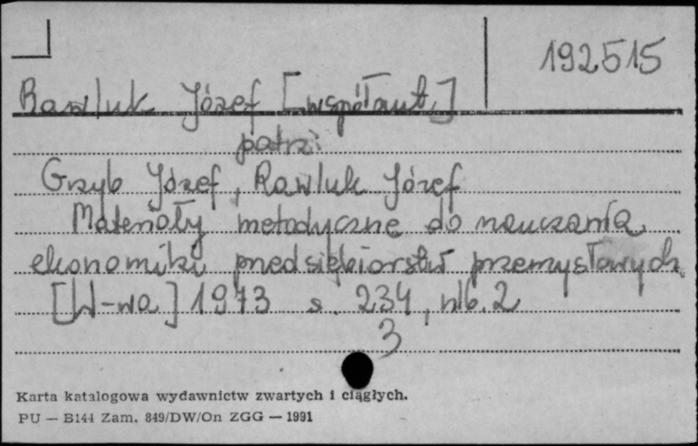 192515
Rawluk Józef [współaut.]
patrz:
Grzyb Józef, Rawluk Józef
Materiały metodyczne do nauczania
ekonomiki przedsiębiorstw przemysłowych
[W-wa] 1973 s. 234, nlb. 2
3
Karta katalogowa wydawnictw zwartych i ciągłych.
PU — B144 Zam. 849/DW/On ZGG — 1991